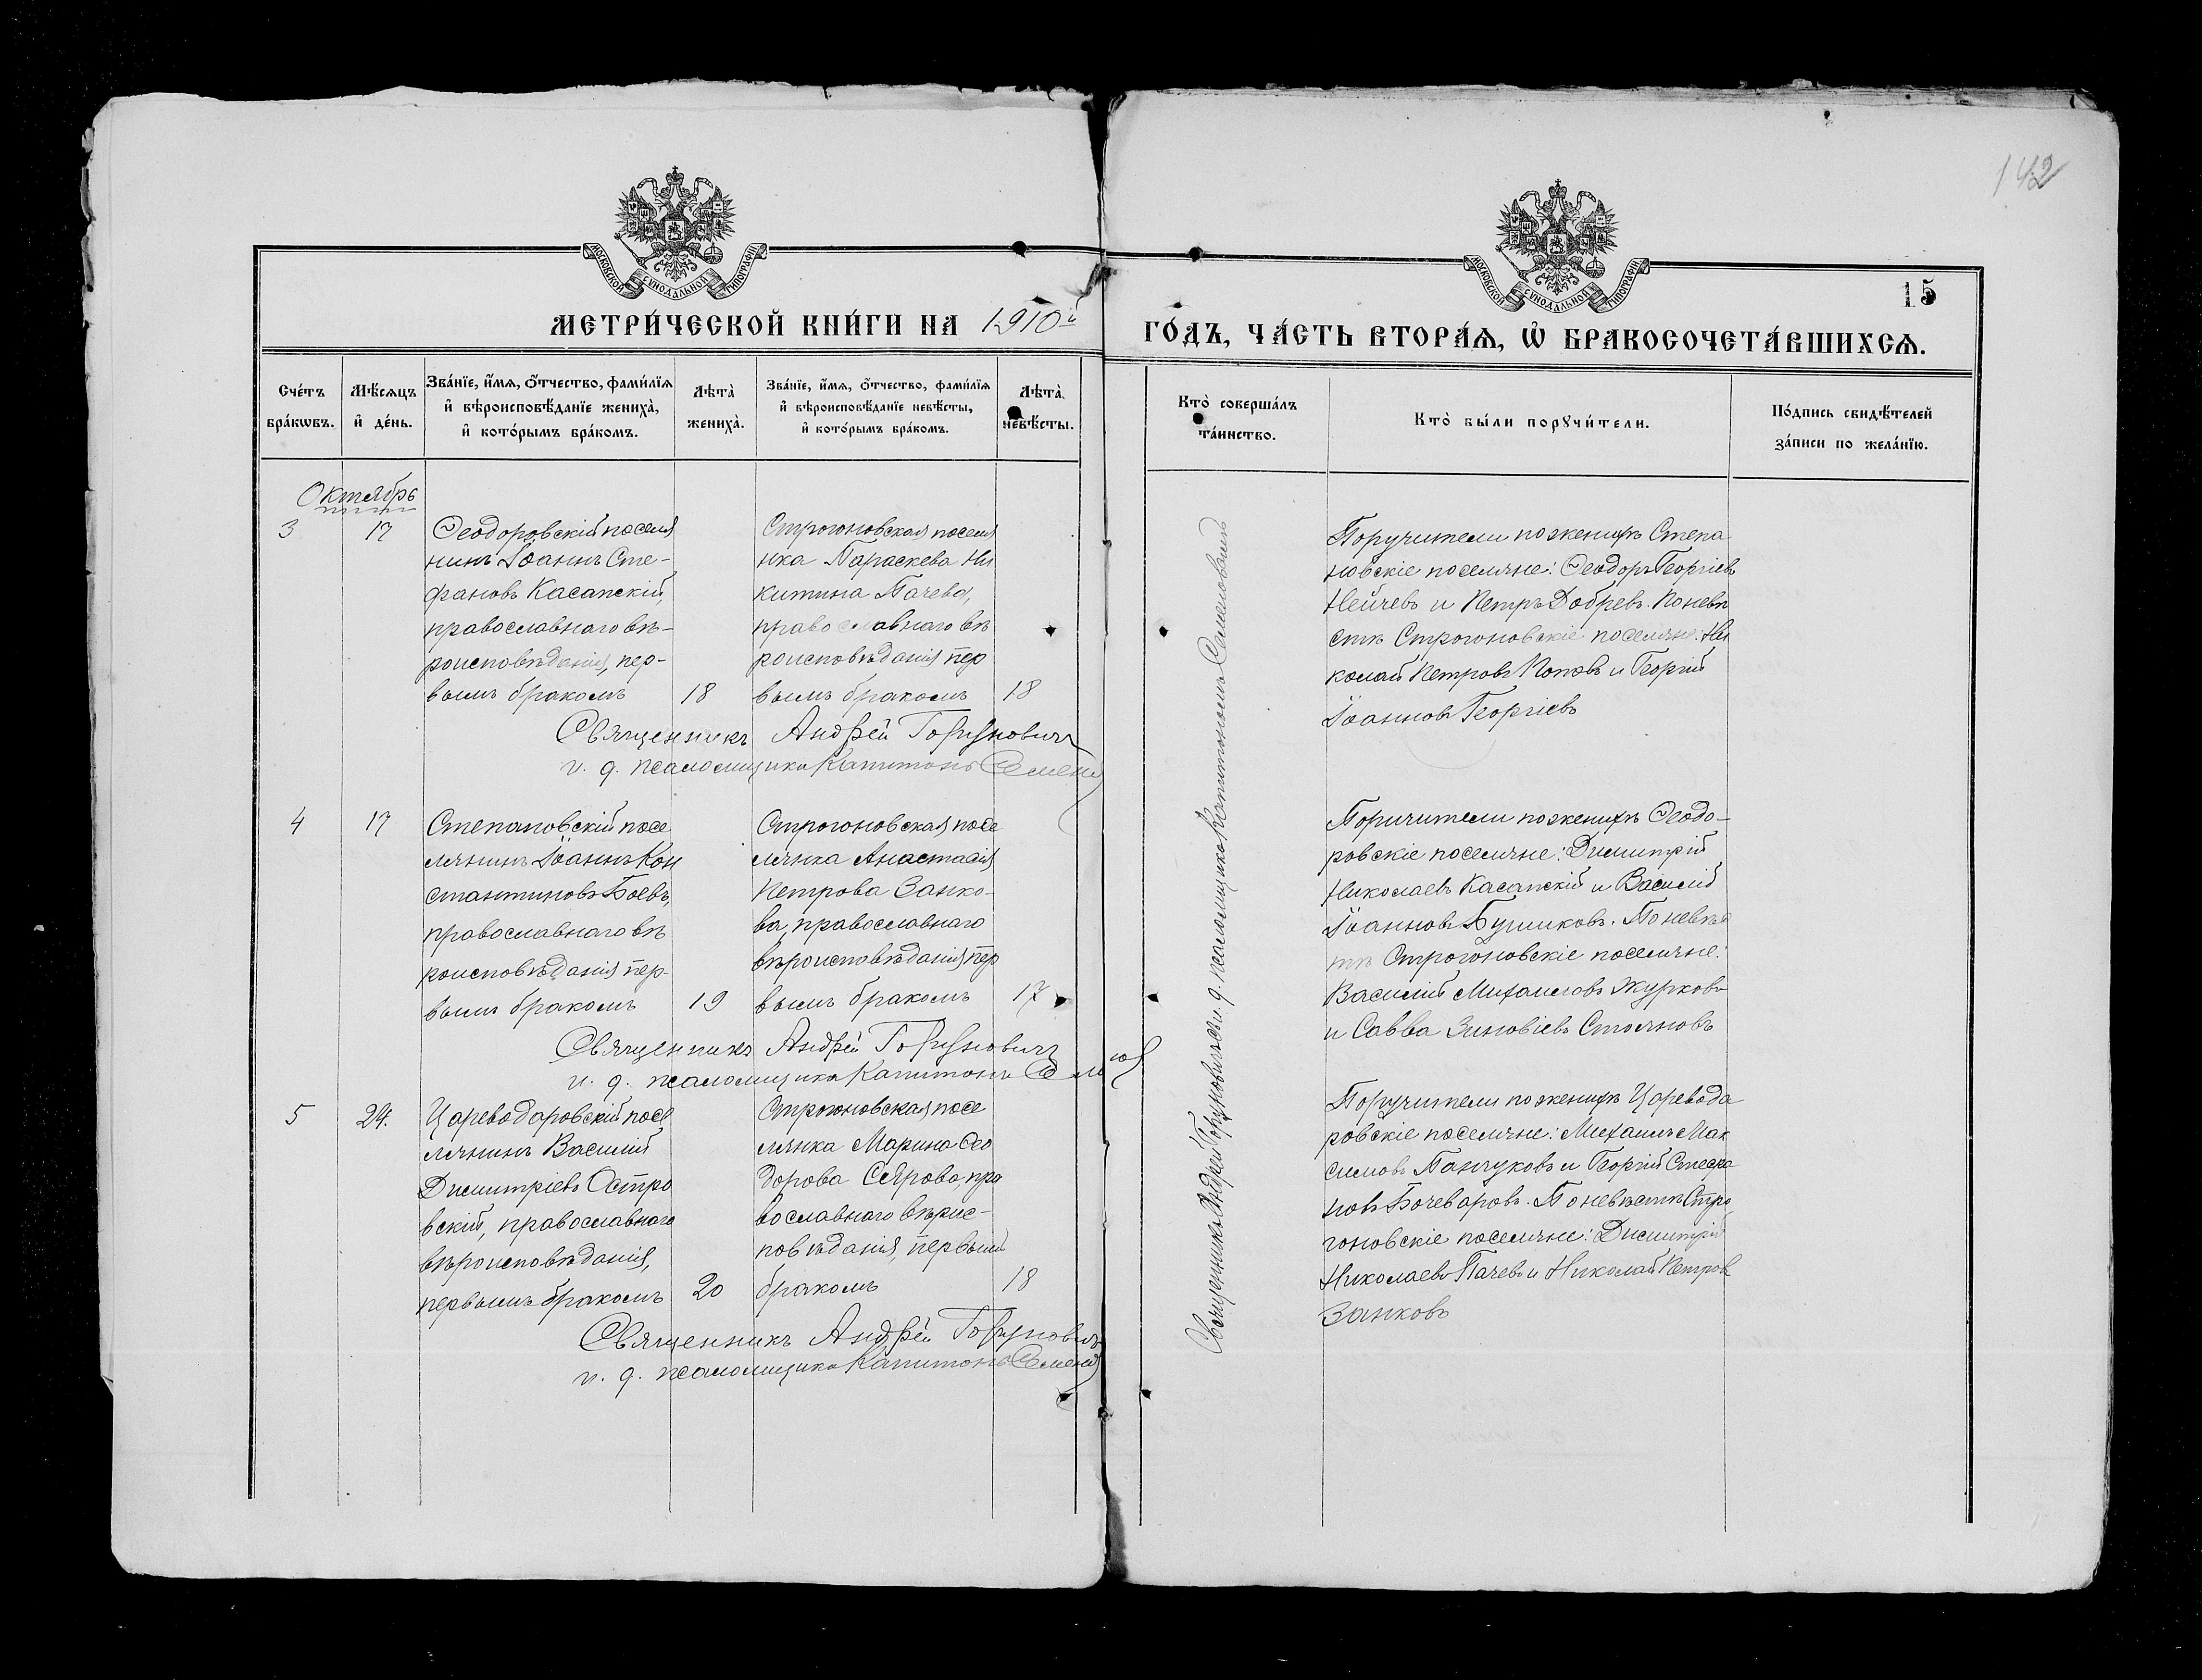 142
МОСКОВСКОЙ СѴНОДАЛЬНОЙ ТИПОГРАФІИ
МОСКОВСКОЙ СѴНОДАЛЬНОЙ ТИПОГРАФІИ
15
МЕТРИ́ЧЕСКОЙ КНИ́ГИ НА 1910й
ГО́ДЪ, ЧА́СТЬ ВТОРА́Ѧ, Ѡ҆ БРАКОСОЧЕТА́ВШИХСѦ.
Сче́тъ
бра́кѡвъ.
Мѣ́сѧцъ
и҆ де́нь.
Зва́нїе, и҆́мѧ, ѻ҆́тчество, фами́лїѧ
и҆ вѣроисповѣ́данїе жениха̀,
и҆ кото́рымъ бра́комъ.
Лѣта̀
жениха̀.
Зва́нїе, и҆́мѧ, ѻ҆́тчество, фами́лїѧ
и҆ вѣроисповѣ́данїе невѣ́сты,
и҆ кото́рымъ бра́комъ.
Лѣта̀
невѣ́сты.
Кто̀ соверша́лъ
та́инство.
Кто̀ бы́ли порꙋчи́тели.
По́дпись свидѣ́телей
за́писи по жела́нїю.
Октябрь
3
17
Ѳеодоровскій поселя
нинъ Іоаннъ Сте-
фановъ Касапскій,
православнаго вѣ-
роисповѣданія, пер-
вымъ бракомъ
18
Строгоновская поселя
нка Параскева Ни
китина Пачева,
православнаго вѣ
роисповѣданія пер
вымъ бракомъ
18
Священникъ Андрей Горуновичъ
и. д. псаломщика Капитонъ Семенов
Поручители по женихѣ Степа
новскіе поселяне: Ѳеодоръ Георгіевъ
Нейчевъ и Петръ Добревъ. По невѣ
стѣ Строгоновскіе поселяне: Ни
колай Петровъ Поповъ и Георгій
Іоанновъ Георгіевъ
4
17
Степановскій посе
лянинъ Іоаннъ Кон
стантиновъ Боевъ,
православнаго вѣ
роисповѣданія пер-
вымъ бракомъ
19
Строгоновская посе
лянка Анастасія
Петрова Занко-
ва, православнаго
вѣроисповѣданія пер
вымъ бракомъ
17
Священникъ Андрей Горуновичъ
и. д. псаломщика Капитонъ
Поричители по женихѣ Ѳеодо-
ровскіе поселяне: Димитрій
Николаевъ Касапскій и Василій
Іоанновъ Бушковъ. По невѣс
тѣ Строгоновскіе поселяне:
Василій Михаиловъ Журковъ
и Савва Зиновіевъ Стояновъ
5
24.
Цареводаровскій посе
лянинъ Василій
Димитріевъ Остро
вскій, православнаго
вѣроисповѣданія,
первымъ бракомъ
20
Строгоновская посе
лянка Марина Ѳео
дорова Сѣрова, пра
вославнаго вѣрис-
повѣданія, первымъ
бракомъ
18
Священникъ Андрей Горуновичъ
и. д. псаломщика Капитонъ Семенов
Поручители по женихѣ Царевода
ровскіе поселяне: Михаилъ Мак
симовъ Панчуковъ и Георгій Стефа
новъ Бочеваровъ. По невѣстѣ Стро
гоновскіе поселяне: Димитрій
Николаевъ Пачевъ и Николай Петров
Занковъ
Священникъ Андрей Горуновичъ съ и. д. псаломщика Капитономъ Семеновымъ